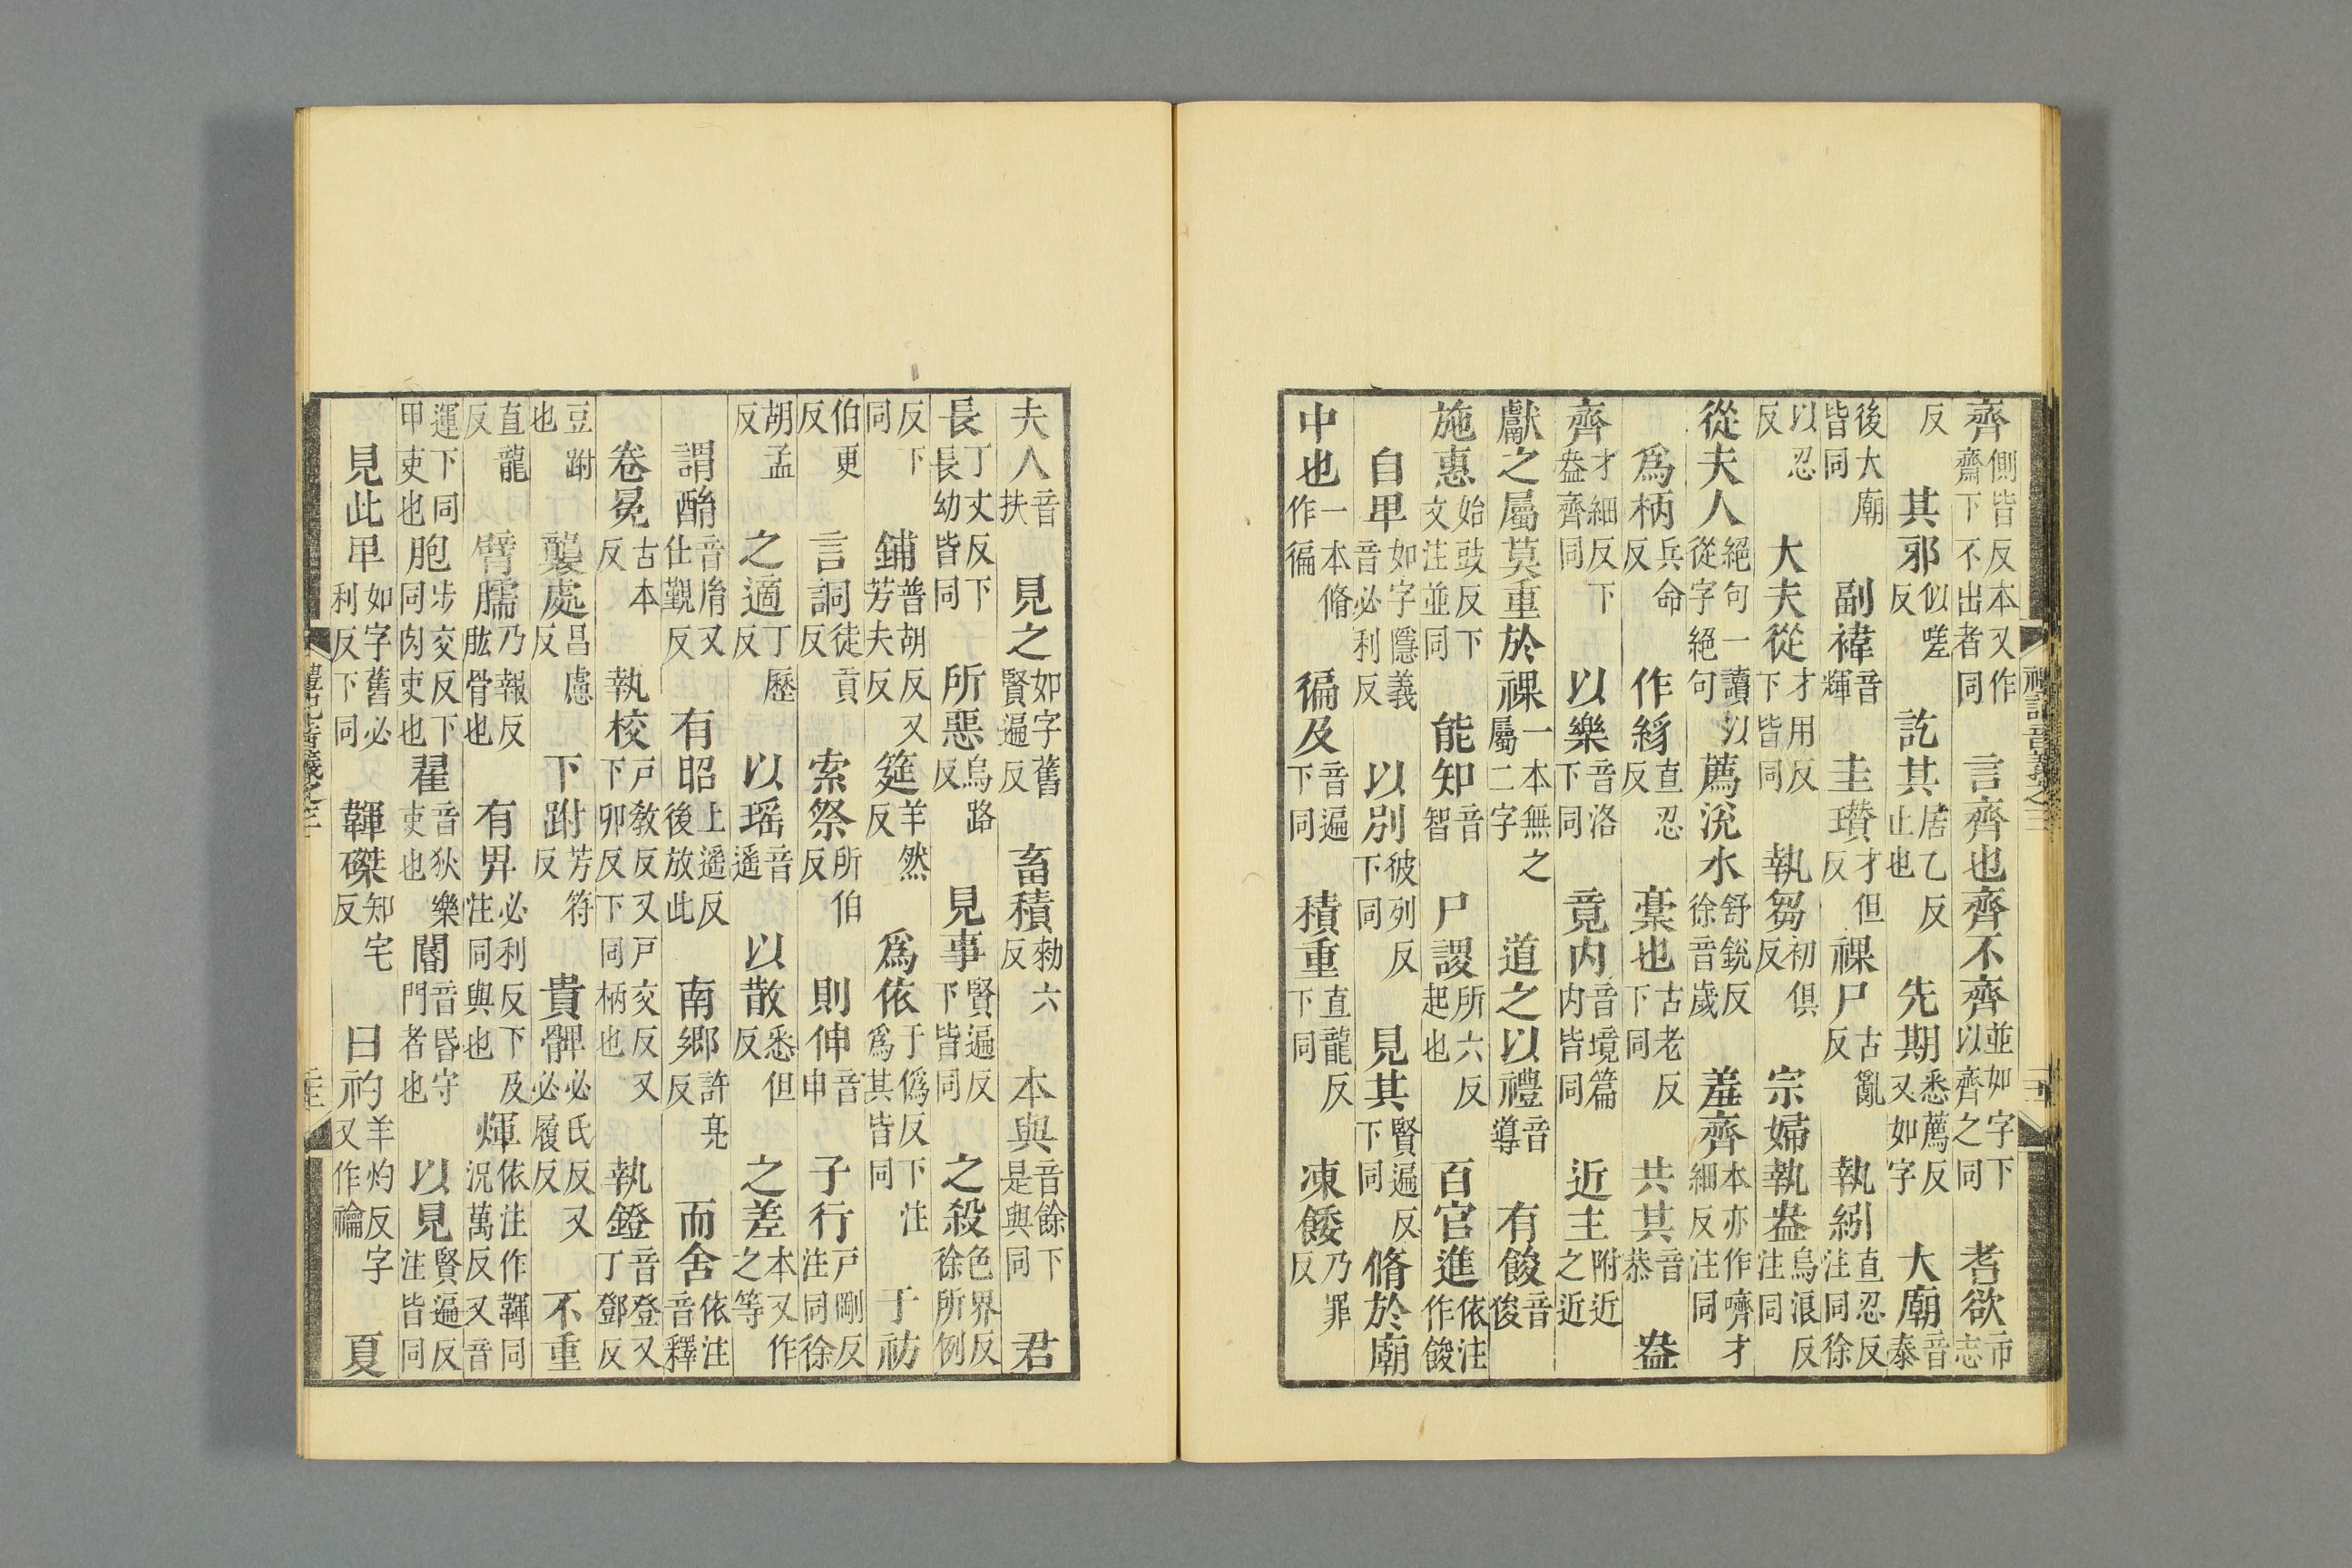 齊側皆反本又作齋下不出者同言齊也齊不齊並如字下以齊之同耆欲市志
反其邪似嗟反訖其居乙反止也先期悉薦反又如字大廟音泰
後大廟皆同副褘音輝圭瓚才但反祼尸古亂反執紖直忍反注同徐
以忍反大夫從才用反下皆同執芻初俱反宗婦執盎烏浪反注同
從夫人絕句一讀以從字絕句薦涚水舒銳反徐音歲羞齊本亦作嚌才細反注同
爲柄兵命反作紖直忍反稾也古老反下同共其音恭盎
齊才細反下盎齊同以樂音洛下同竟内音境篇内皆同近主附近之近
獻之屬莫重於祼一本無之屬二字道之以禮音導有餕音俊
施惠始豉反下文注並同能知音智尸謖所六反起也百官進依注作餕
自卑如字隱義音必利反以別彼列反下同見其賢遍反下同脩於廟
中也一本脩作徧徧及音遍下同積重直龍反下同凍餒乃罪反
夫人音扶見之如字舊賢遍反畜積勑六反本與音餘下是與同君
長丁丈反下長幼皆同所惡烏路反見事賢遍反下皆同之殺色界反徐所例
反下同鋪普胡反又芳夫反筵羊然反爲依于僞反下注爲其皆同于祊
伯更反言詞徒貢反索祭所伯反則伸音申子行戶剛反注同徐
胡孟反之適丁歷反以瑤音遙以散悉但反之差本又作之等
謂酳音胤又仕覲反有昭上遥反後放此南鄉許亮反而舍依注音釋
卷冕古本反執校戶教反又戶交反又下卯反下同柄也執鐙音登又丁鄧反
豆跗也襲處昌慮反下跗芳符反貴髀必氏反又必履反不重
直龍反臂臑乃報反肱骨也有畀必利反下及注同與也煇依注作韗同況萬反又音
運下同甲吏也胞步交反下同肉吏也翟音狄樂吏也閽音昏守門者也以見賢遍反注皆同
見此卑如字舊必利反下同韗磔知宅反曰礿羊灼反字又作禴夏